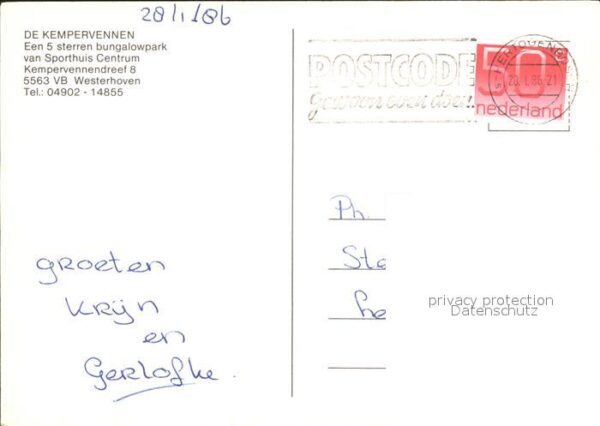 20/1/86
DE KEMPERVENNEN
Een 5 sterren bungalowpark
van Sporthuis Centrum
Kempervennendreef 8
5563 VB Westerhoven
Tel.: 04902 - 14855
POSTCODE
gewoon even doen
20.1.86.21
50
nederland
Ph.
Ste
he
privacy protection
Datenschutz
groeten
Krijn
en
Gerlofke.